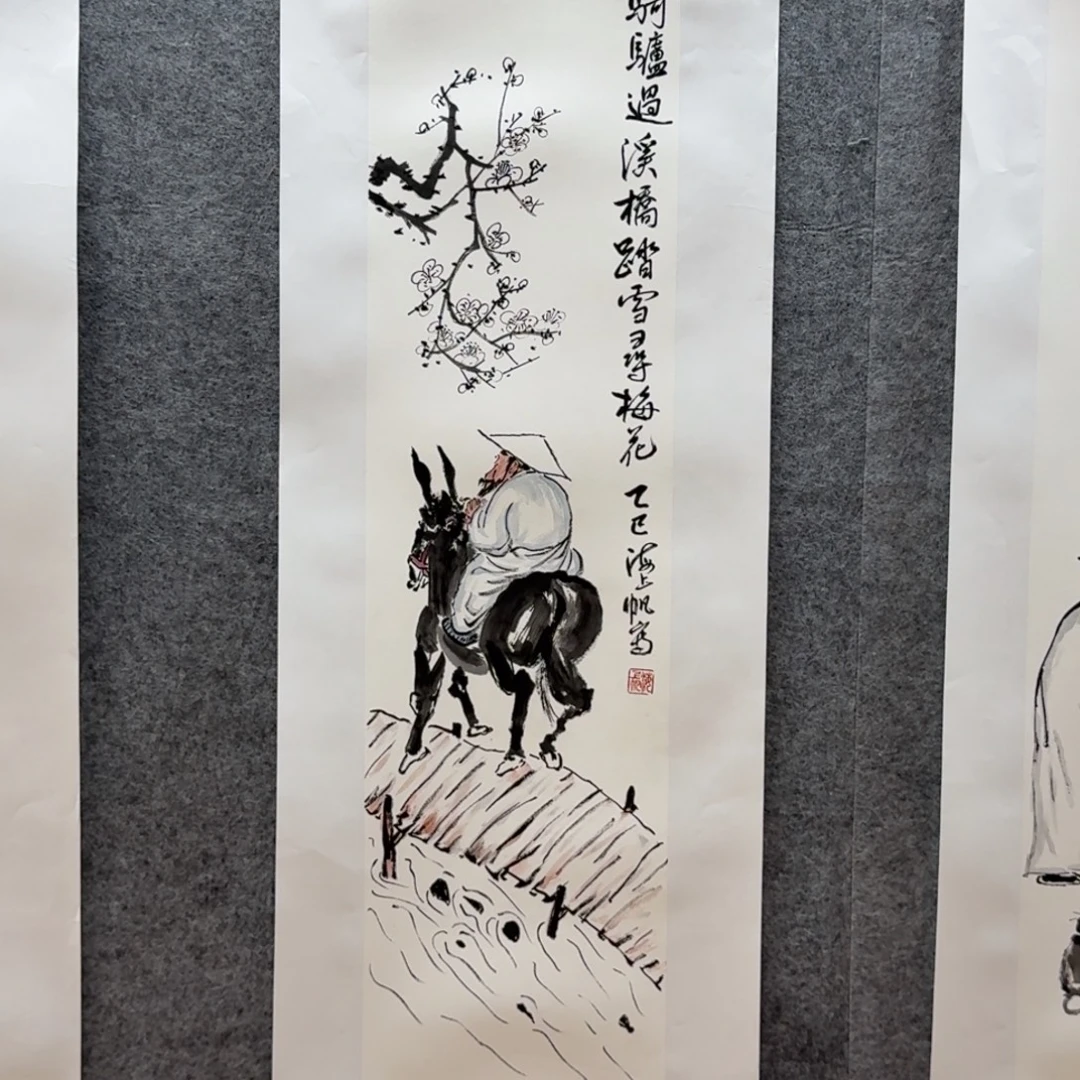 騎驢過溪橋踏雪尋梅花 乙巳海上帆寫